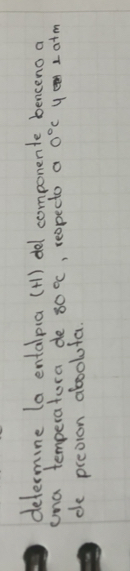 determine la entalpia (H) del componente benceno a
una temperatura de 80 °C, respecto a 0°C y 1 atm
de presion absoluta.